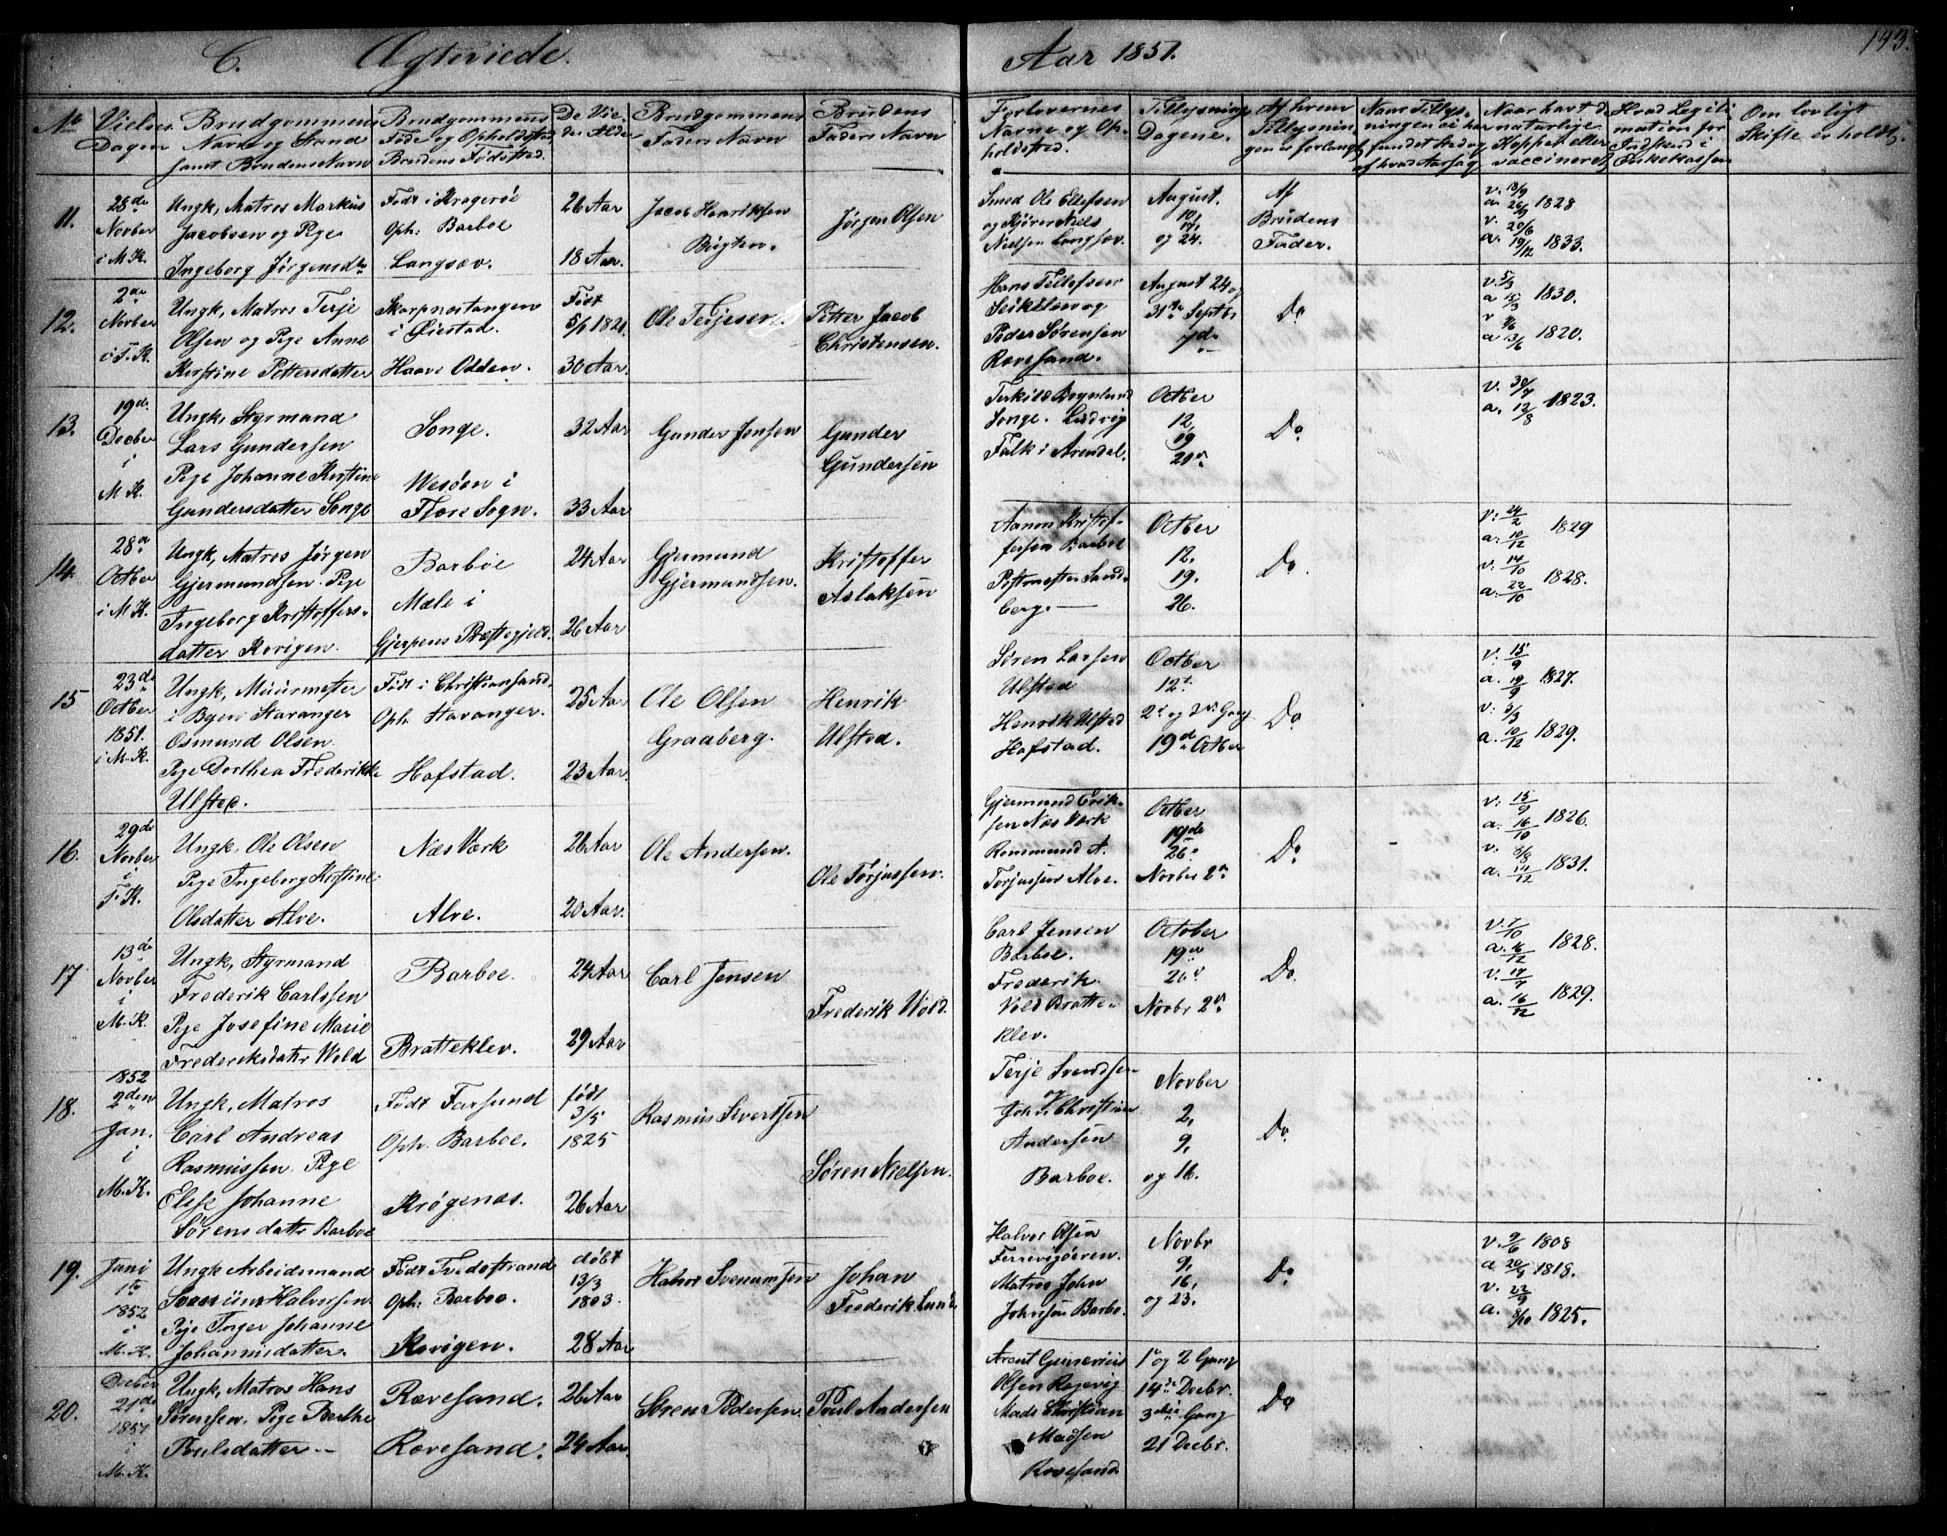 C. Ægteviede.
Aar 1851.
143.
No
Vielses
Dagen
Brudgommens
Navn og Stand
samt Brudens Navn
Brudgommens
Føde og Opholdsted,
Brudens Fødested.
De Vie-
des Alder
Brudgommens
Faders Navn
Brudens
Faders Navn
Forlovernes
Navne og Op-
holdssted.
Tillysnings
Dagene.
Af hvem
Tillysnin-
gen er forlangt
Naar Tillys-
ningen ei har
fundet Sted og
af hvad Aarsag
Naar havt de
naturlige
Kopper eller
vaccineret
Hvad Legiti-
mation for
Indskud i
Enkekassen
Om lovligt
Skifte er holdt.
11.
28de
Novber
i M.K.
Ungk, Matros Markus
Jacobsen og Pige
Ingeborg Jørgensdtr
Født i Kragerøe
Oph: Barboe
Langsæv.
26 Aar
18 Aar.
Jacob Henriksen
Bugten.
Jørgen Olsen
Smed Ole Ellefsen
og Kjører Niels
Nielsen Langsæv.
August.
10,
17,
og 24.
Af
Brudens
Fader.
v. 18/9
a. 26/9 1828
v. 20/6
a. 19/12 1833.
12.
2de
Novber
i F.K.
Ungk, Matros Terje
Olsen og Pige Anne
Kirstine Pettersdatter
Skarpnestangen
i Øiestad.
Haave Odden.
Født
5/1 1821
30 Aar.
Ole Terjesen.
Petter Jacob
Christensen.
Hans Tellefsen
Seikilen og
Peder Sørensen
Rævesand.
August 24 og
31te Septbr
7de
Do
v. 5/3
a 15/3 1830.
v 6/6
a 13/6 1820.
13.
19de
Decber
i
M.K.
Ungk, Styrmand
Lars Gundersen
Pige Johanne Kirstine
Gundersdatter Songe
Songe.
Wesøen i
Flore Sogn.
32 Aar
33 Aar
Gunder Jensen
Gunder
Gundersen
Songe. Ludvig
Falk i Arendal.
Octber
12,
19
20de
Do
v. 30/7
a. 12/8 1823.
14.
28de
Octber
i M.K.
Ungk, Matros Jørgen
Gjermundsen. Pige
Ingeborg Kristoffers-
datter Kevigen.
Barbøe
Mæle i
Gjerpens Præstegjeld.
24 Aar
26 Aar
Gjermund
Gjermundsen.
Kristoffer
Aslaksen
Aanon Kristof-
fersen Barboe
Postmester Sand-
berg.
Octber
12,
19.
26.
Do
v: 24/2
a: 10/12 1829
v. 14/10
a: 22/10 1828.
15
23de
Octber
1851.
i M.K.
Ungk, Muurmester
i Byen Stavanger
Osmund Olsen.
Pige Dorthea Frederikke
Ulsted.
Født i Christiansand.
Oph. Stavanger.
Hofstad.
25 Aar
23 Aar.
Ole Olsen
Graaberg.
Henrik
Ulsted.
Søren Larsen
Ulsted
Henrik Ulsted
Hofstad.
Octber
12te
2de og 3die Gang
19de Octber
Do
v: 15/9
a. 19/9 1827.
v: 3/3
a. 10/12 1829.
16.
29de
Novber
i
F.K.
Ungk, Ole Olsen
Pige Ingeborg Kirstine
Olsdatter Alve.
Næs Værk
Alve.
26 Aar
20 Aar.
Ole Andersen.
Ole Torjussen.
Gjermund Erik-
sen Næs Værk
Rommund A.
Torjussen Alve.
Octber
19de
26
Novbr 2den
Do
v: 15/9
a. 16/10 1826.
v. 8/8
a. 14/12 1831.
17
13de
Novber
i
M.K.
Ungk, Styrmand
Frederik Carlssen
Pige Josefine Marie
Frederiksdatr Wold
Barboe.
Bratteklev.
24 Aar
29 Aar
Carl Jensen
Frederik Wold.
Carl Jensen
Barboe.
Frederik
Vold Bratte-
klev.
October
19de
26de
Novbr 2den
Do.
v. 7/10
a. 16/12 1828.
v. 17/7
a. 16/12 1829.
18.
1852
2den
Jan.
i
M.K.
Ungk, Matros
Carl Andreas
Rasmussen Pige
Else Johanne
Sørensdattr Barboe
Født Farsund
Oph. Barboe.
Krøgenæs.
født
3/5
1825
26 Aar
Rasmus Sivertsen
Søren Nielsen.
Terje Svendsen
og
John Christian
Andersen
Barboe.
Novber
2,
9,
og 16.
Do
19.
Jani
1te
1852
i
M.K.
Ungk Arbeidsmand
Svennung Halvorsen
Pige Inger Johanne
Johannisdatter.
Født Tvedestrand
Oph: Barboe.
Kevigen.
døbt
13/3
1803.
28 Aar
Halvor Svenumsen
Johan
Frederik Lund
Halvor Olsen
Ferrevigøeren.
Matros John
Johnsen Barbo.
Novbr
9,
16,
og 23.
Do
v. 9/6 1808
a 20/9 1818.
v. 22/9
a. 8/10 1825.
20.
Decber
21de
1851
i
M.K.
Ungk, Matros Hans
Sørensen. Pige Berthe
Poulsdatter
Rævesand.
Rævesand.
26 Aar
24 Aar.
Søren Pedersen.
Poul Andersen
Arent Gunerius
Olsen Rægevig
Mads Christian
Madsen
Rævesand
1te og 2 Gang
14de Decbr.
3die Gang
21 Decbr.
Do